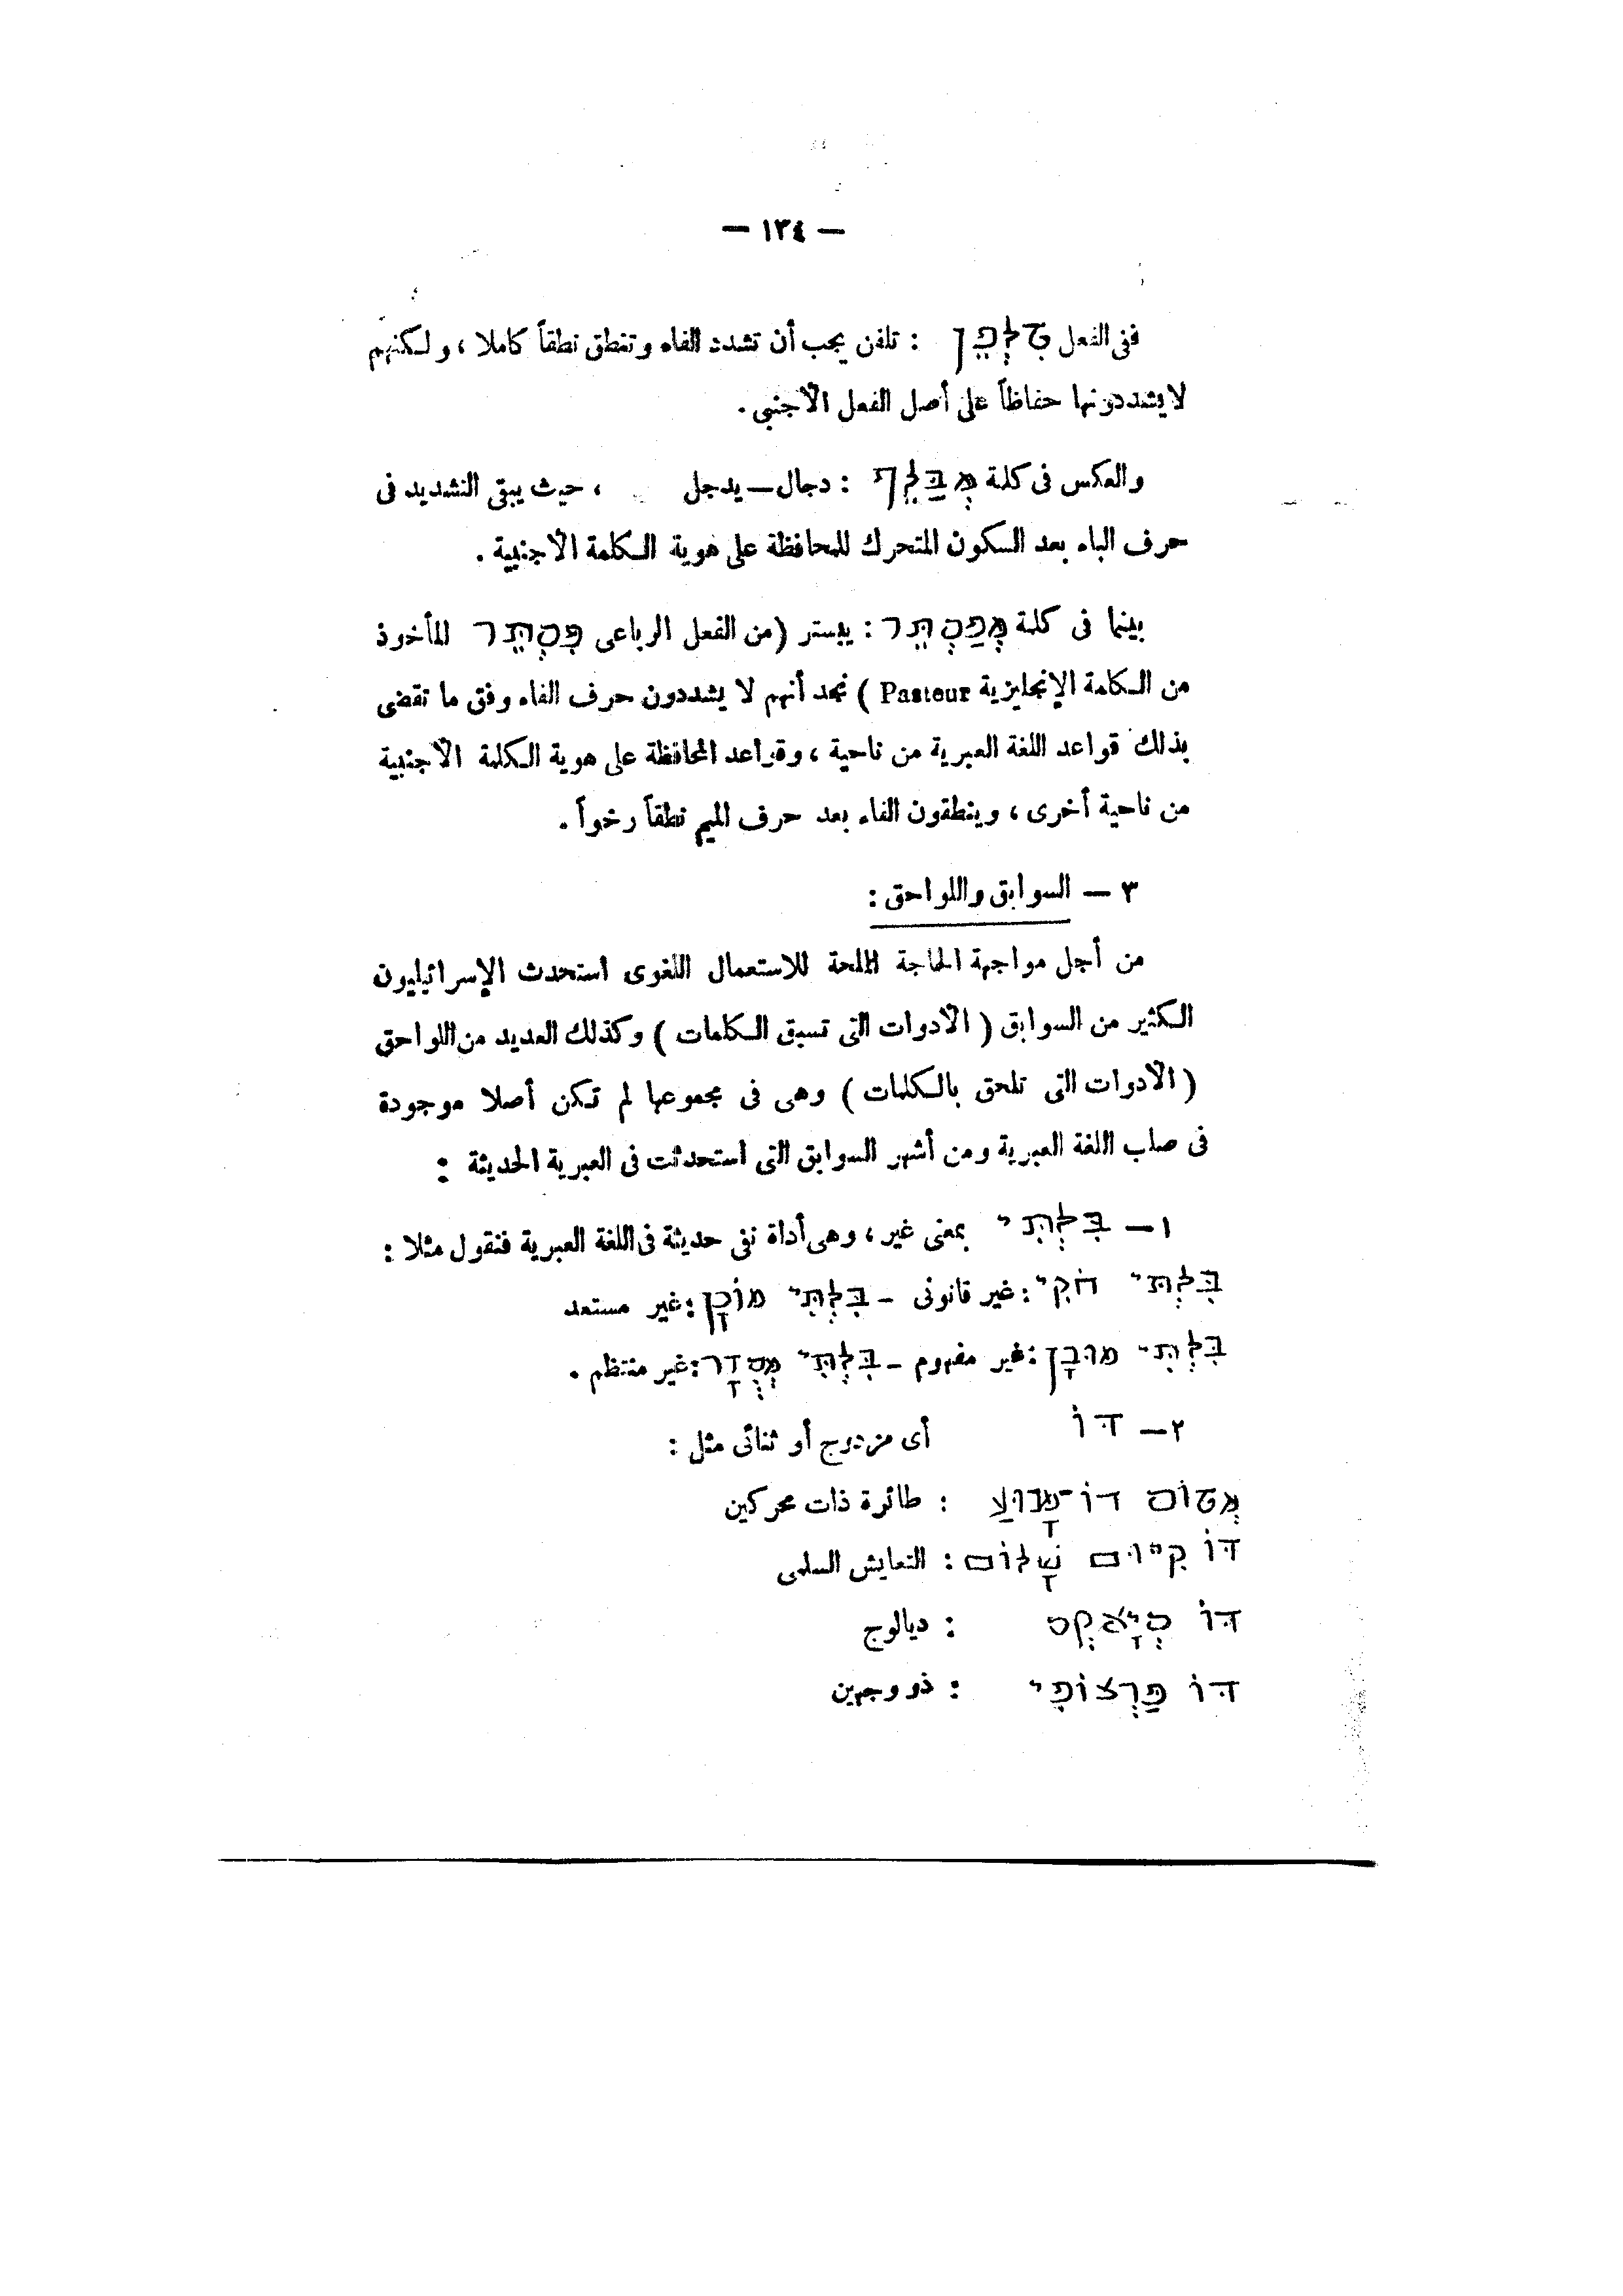 — ١٣٤ —
ففى الفعل טִלְפֵּן : تلفن يجب أن تشدد الفاء وتنطق نطقاً كاملا ، ولكنهم
لا يشددونها حفاظاً على أصل الفعل الأجنبى .
والعكس فى كلمة : دجال — يدجل ، حيث يبقى التشديد فى
حرف الباء بعد السكون المتحرك للمحافظة على هوية الكلمة الأجنبية .
بينما فى كلمة מְפַסְתֵּר : يبستر (من الفعل الرباعى פִּסְתֵּר المأخوذ
من الكلمة الإنجليزية Pasteur ) نجد أنهم لا يشددون حرف الفاء وفق ما تقضى
بذلك قواعد اللغة العبرية من ناحية ، وقواعد المحافظة على هوية الكلمة الأجنبية
من ناحية أخرى ، وينطقون الفاء بعد حرف الميم نطقاً رخواً .
٣ — السوابق واللواحق :
من أجل مواجهة الحاجة الملحة للاستعمال اللغوى استحدث الإسرائيليون
الكثير من السوابق ( الأدوات التى تسبق الكلمات ) وكذلك العديد من اللواحق
( الأدوات التى تلحق بالكلمات ) وهى فى مجموعها لم تكن أصلا موجودة
فى صلب اللغة العبرية ومن أشهر السوابق التى استحدثت فى العبرية الحديثة :
١ — בִּלְתִּי بمعنى غير ، وهى أداة نفى حديثة فى اللغة العبرية فنقول مثلا :
בִּלְתִּי חֹקִי : غير قانونى - בִּלְתִּי מוֹכָן : غير مستعد
בִּלְתִּי מוּבָן : غير مفهوم - בִּלְתִּי מְסֻדָּר : غير منتظم .
٢ — דּוֹ أى مزدوج أو ثنائى مثل :
מְטוֹס דוֹ : طائرة ذات محركين
דּוֹ קִיּוּם שָׁלוֹם : التعايش السلمى
דּוֹ : ديالوج
דּוֹ פַּרְצוֹפִי : ذو وجهين